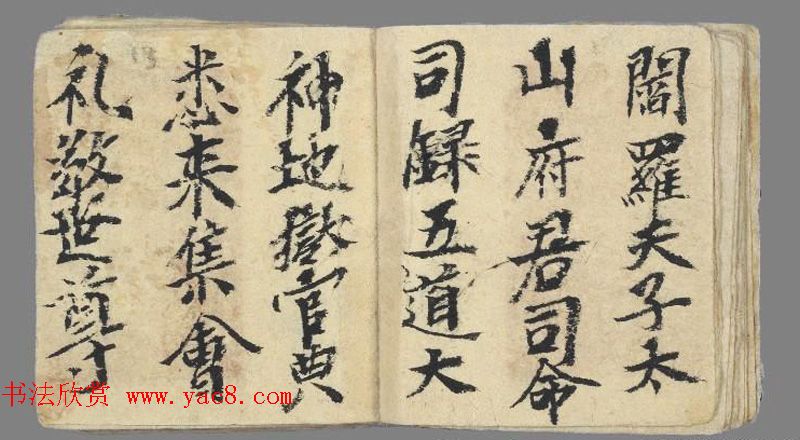 閻羅夫子太
山府君司命
司録五道大
神地獄官典
悉来集會
礼敬世尊
13
书法欣赏 www.yac8.com